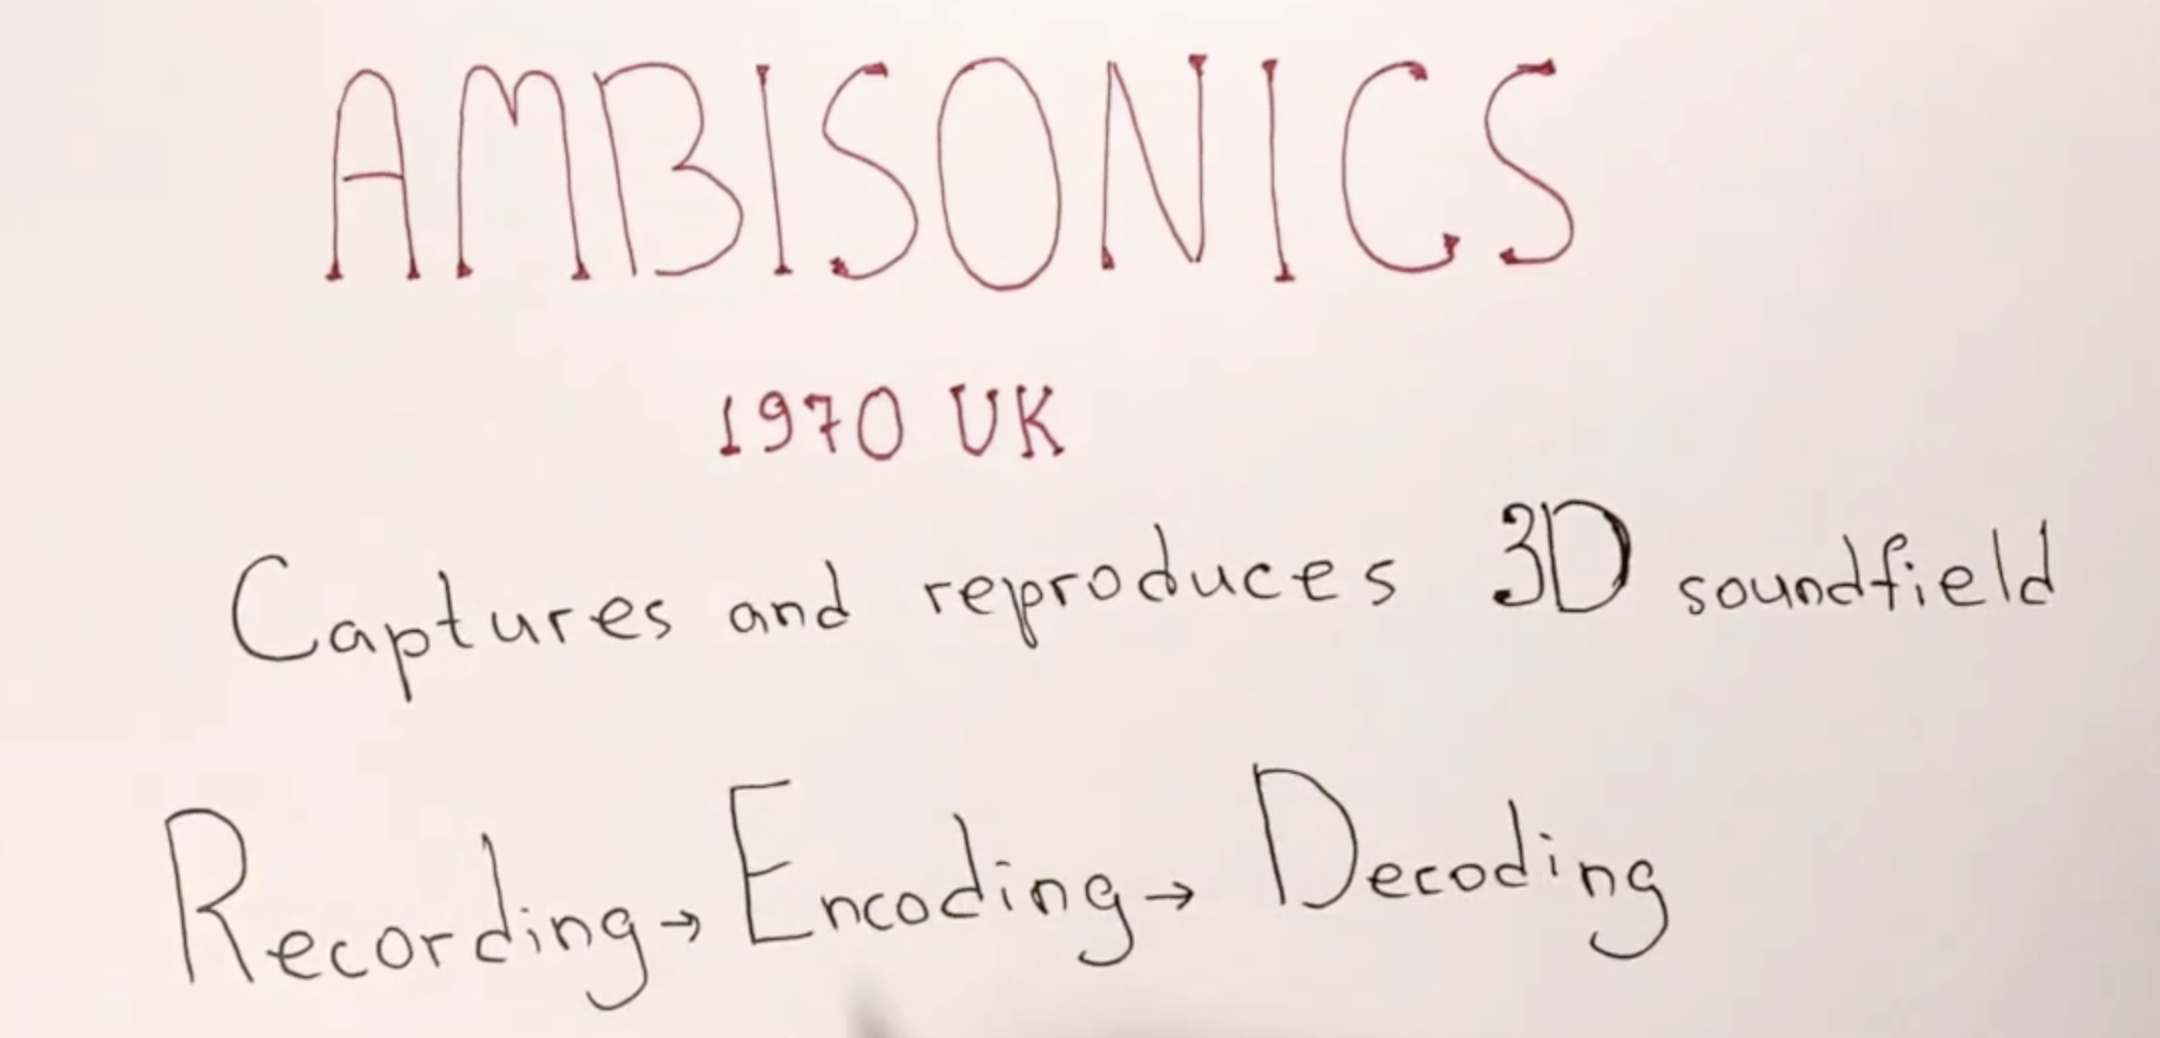 AMBISONICS
1970 UK
Captures and reproduces 3D soundfield
Recording → Encoding → Decoding